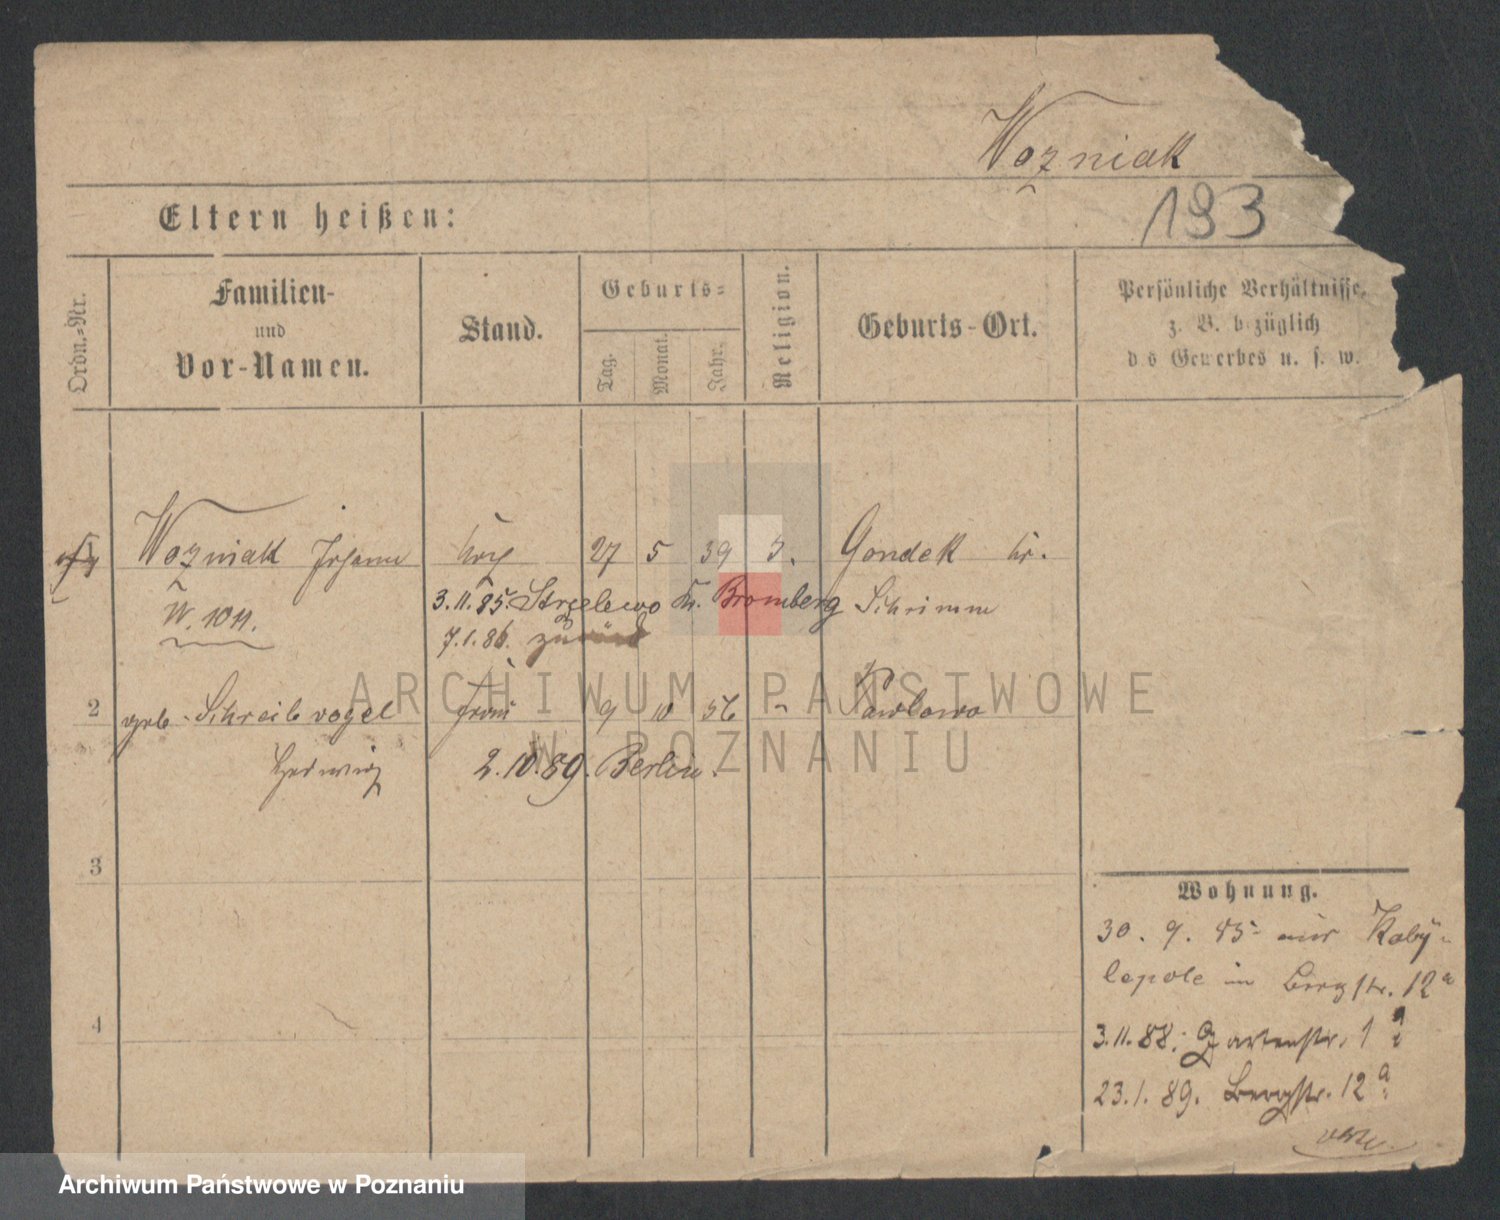 Wozniak
193
Eltern heißen:
Ordn.-Nr.
Familien-
und
Vor-Namen.
Stand.
Geburts-
Tag.
Monat.
Jahr.
Religion.
Geburts-Ort.
Persönliche Verhältnisse,
z. B. bezüglich
des Gewerbes u. s. w.
Wozniak Johann 27 5 39 Gondek Kr.
W. 1011.
3.11.85. Strzelewo Kr. Bromberg Schrimm
7.1.86. zurück
2 geb. Schreibvogel Frau 9 10 56 " Pawlowo
Hedwig 2.10.89. Berlin.
3
4
Wohnung.
30. 9. 85 aus Koby-
lepole in Bergstr. 12a
3.11.88. Gartenstr. 1a
23.1.89. Bergstr. 12a
ARCHIWUM PAŃSTWOWE
W POZNANIU
Archiwum Państwowe w Poznaniu